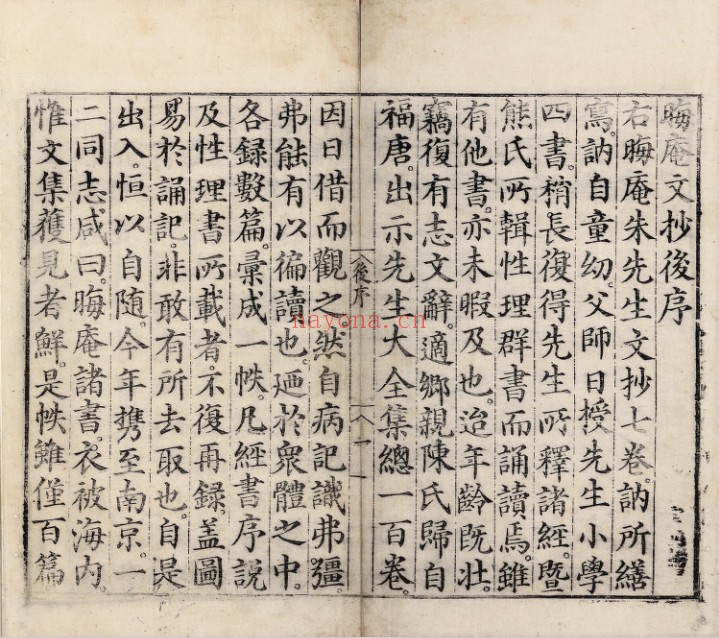 晦庵文抄後序
右晦庵朱先生文抄七卷。訥所繕
寫。訥自童幼。父師日授先生小學
四書。稍長復得先生所釋諸經。暨
熊氏所輯性理群書而誦讀焉。雖
有他書。亦未暇及也。迨年齡既壯。
竊復有志文辭。適鄉親陳氏歸自
福唐。出示先生大全集總一百卷。
後序
一
因日借而觀之。然自病記識弗彊。
弗能有以徧讀也。廼於衆體之中。
各録數篇。彙成一帙。凡經書序說
及性理書所載者。不復再録。盖圖
易於誦記。非敢有所去取也。自是
出入。恒以自隨。今年携至南京。一
二同志咸曰。晦庵諸書。衣被海内。
惟文集獲見者鮮。是帙雖僅百篇
nayona.cn